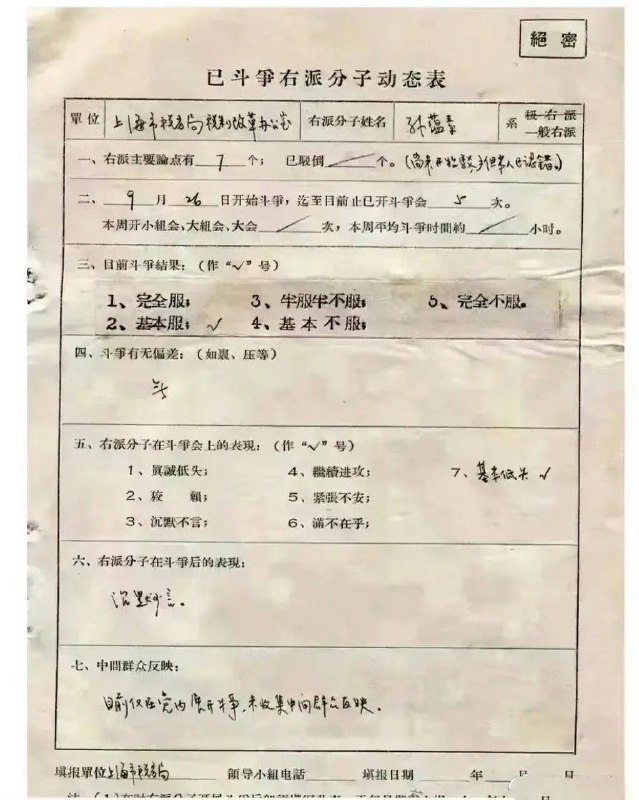 絕密
已斗爭右派分子动态表
單位 上海市稅务局稅制改革办公室 右派分子姓名 孙蕴 系 极右派
一般右派
一、右派主要論点有 7 个； 已駁倒 ／ 个。(尚未开始駁，但本人已認錯。)
二、9 月 26 日开始斗爭，迄至目前止已开斗爭会 5 次。
本周开小組会、大組会、大会 ／ 次，本周平均斗爭时間約 ／ 小时。
三、目前斗爭結果：(作“√”号)
1、完全服； 3、半服半不服； 5、完全不服。
2、基本服； √ 4、基本不服；
四、斗爭有无偏差：(如裏、压等)
五、右派分子在斗爭会上的表現：(作“√”号)
1、眞誠低头； 4、繼續进攻； 7、基本低头 √
2、狡賴； 5、緊張不安；
3、沉默不言； 6、滿不在乎；
六、右派分子在斗爭后的表現：
沉默少言。
七、中間群众反映：
目前仅在党内展开斗爭，未收集中间群众反映。
塡报單位 上海市稅务局 領导小組电話 塡报日期 年 月 日